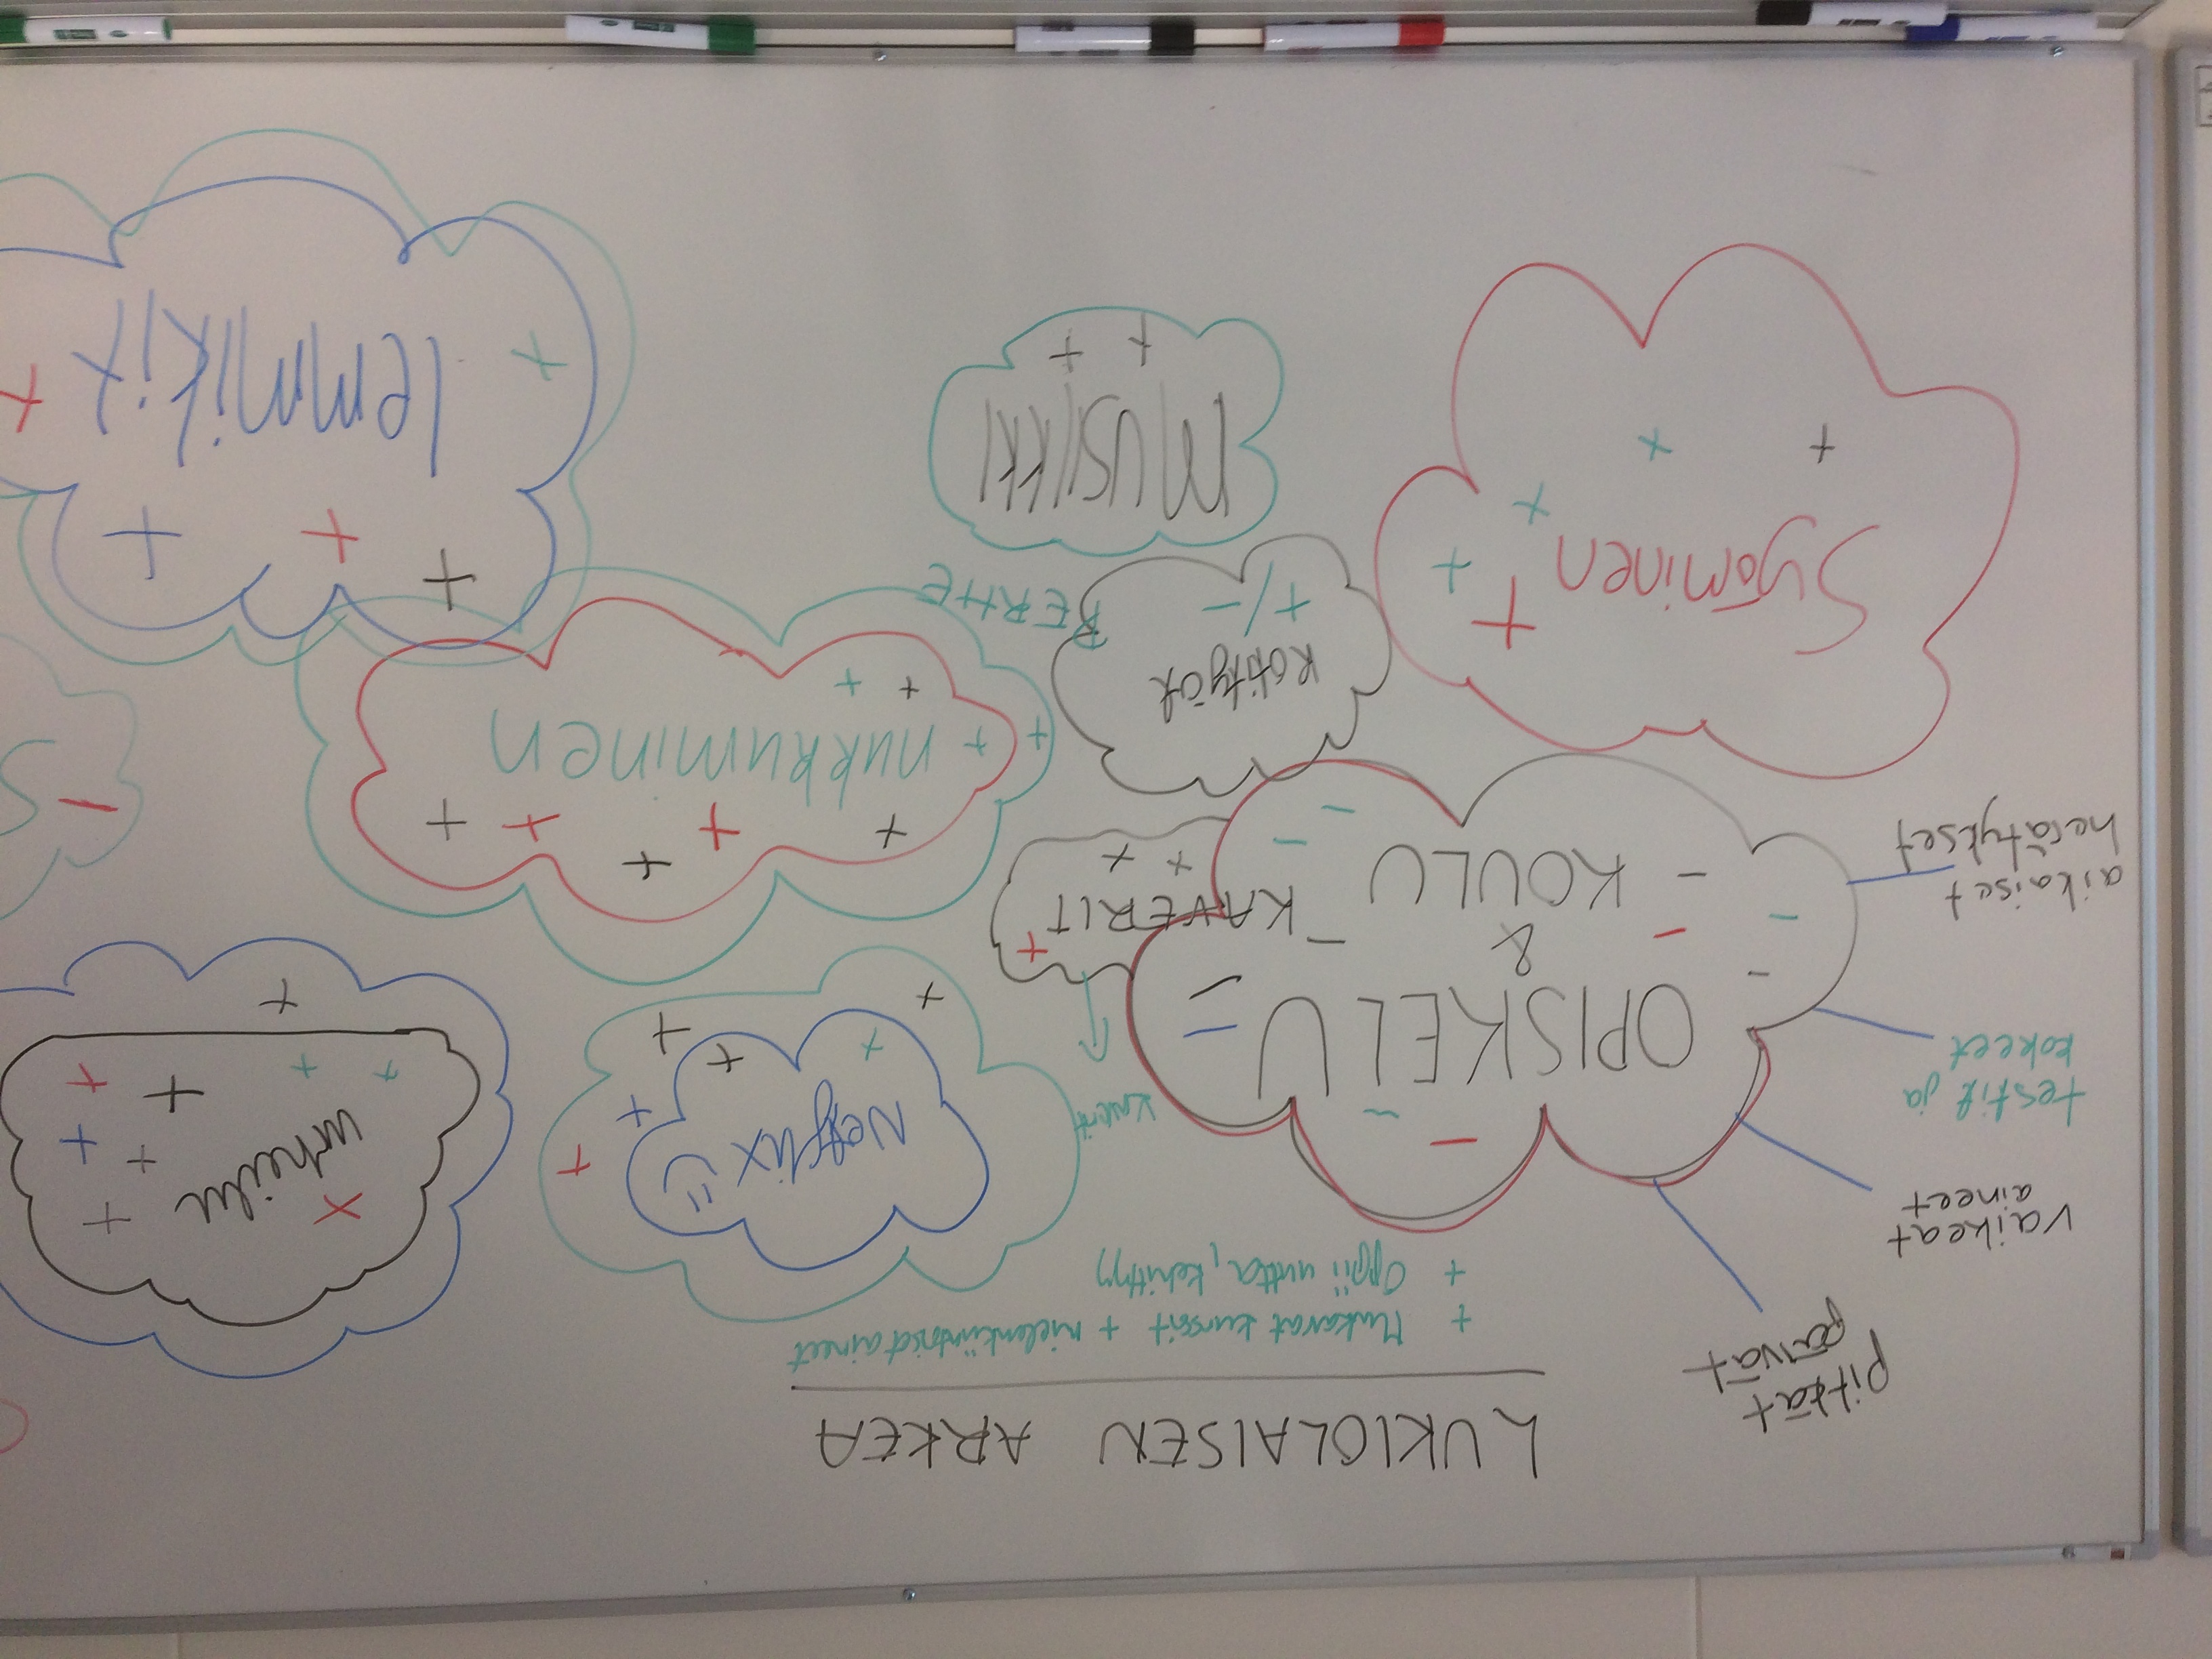 LUKIOLAISEN ARKEA
+ Mukavat kurssit + mielenkiintoiset aineet
+ Oppii uutta, kehittyy
pitkät
päivät
vaikeat
aineet
testit ja
kokeet
aikaiset
herätykset
OPISKELU =
&
- KOULU
kaverit
KAVERIT
Netflix
urheilu
+ nukkuminen
kotityöt
+/-
PERHE
Syöminen
MUSIIKKI
lemmikit